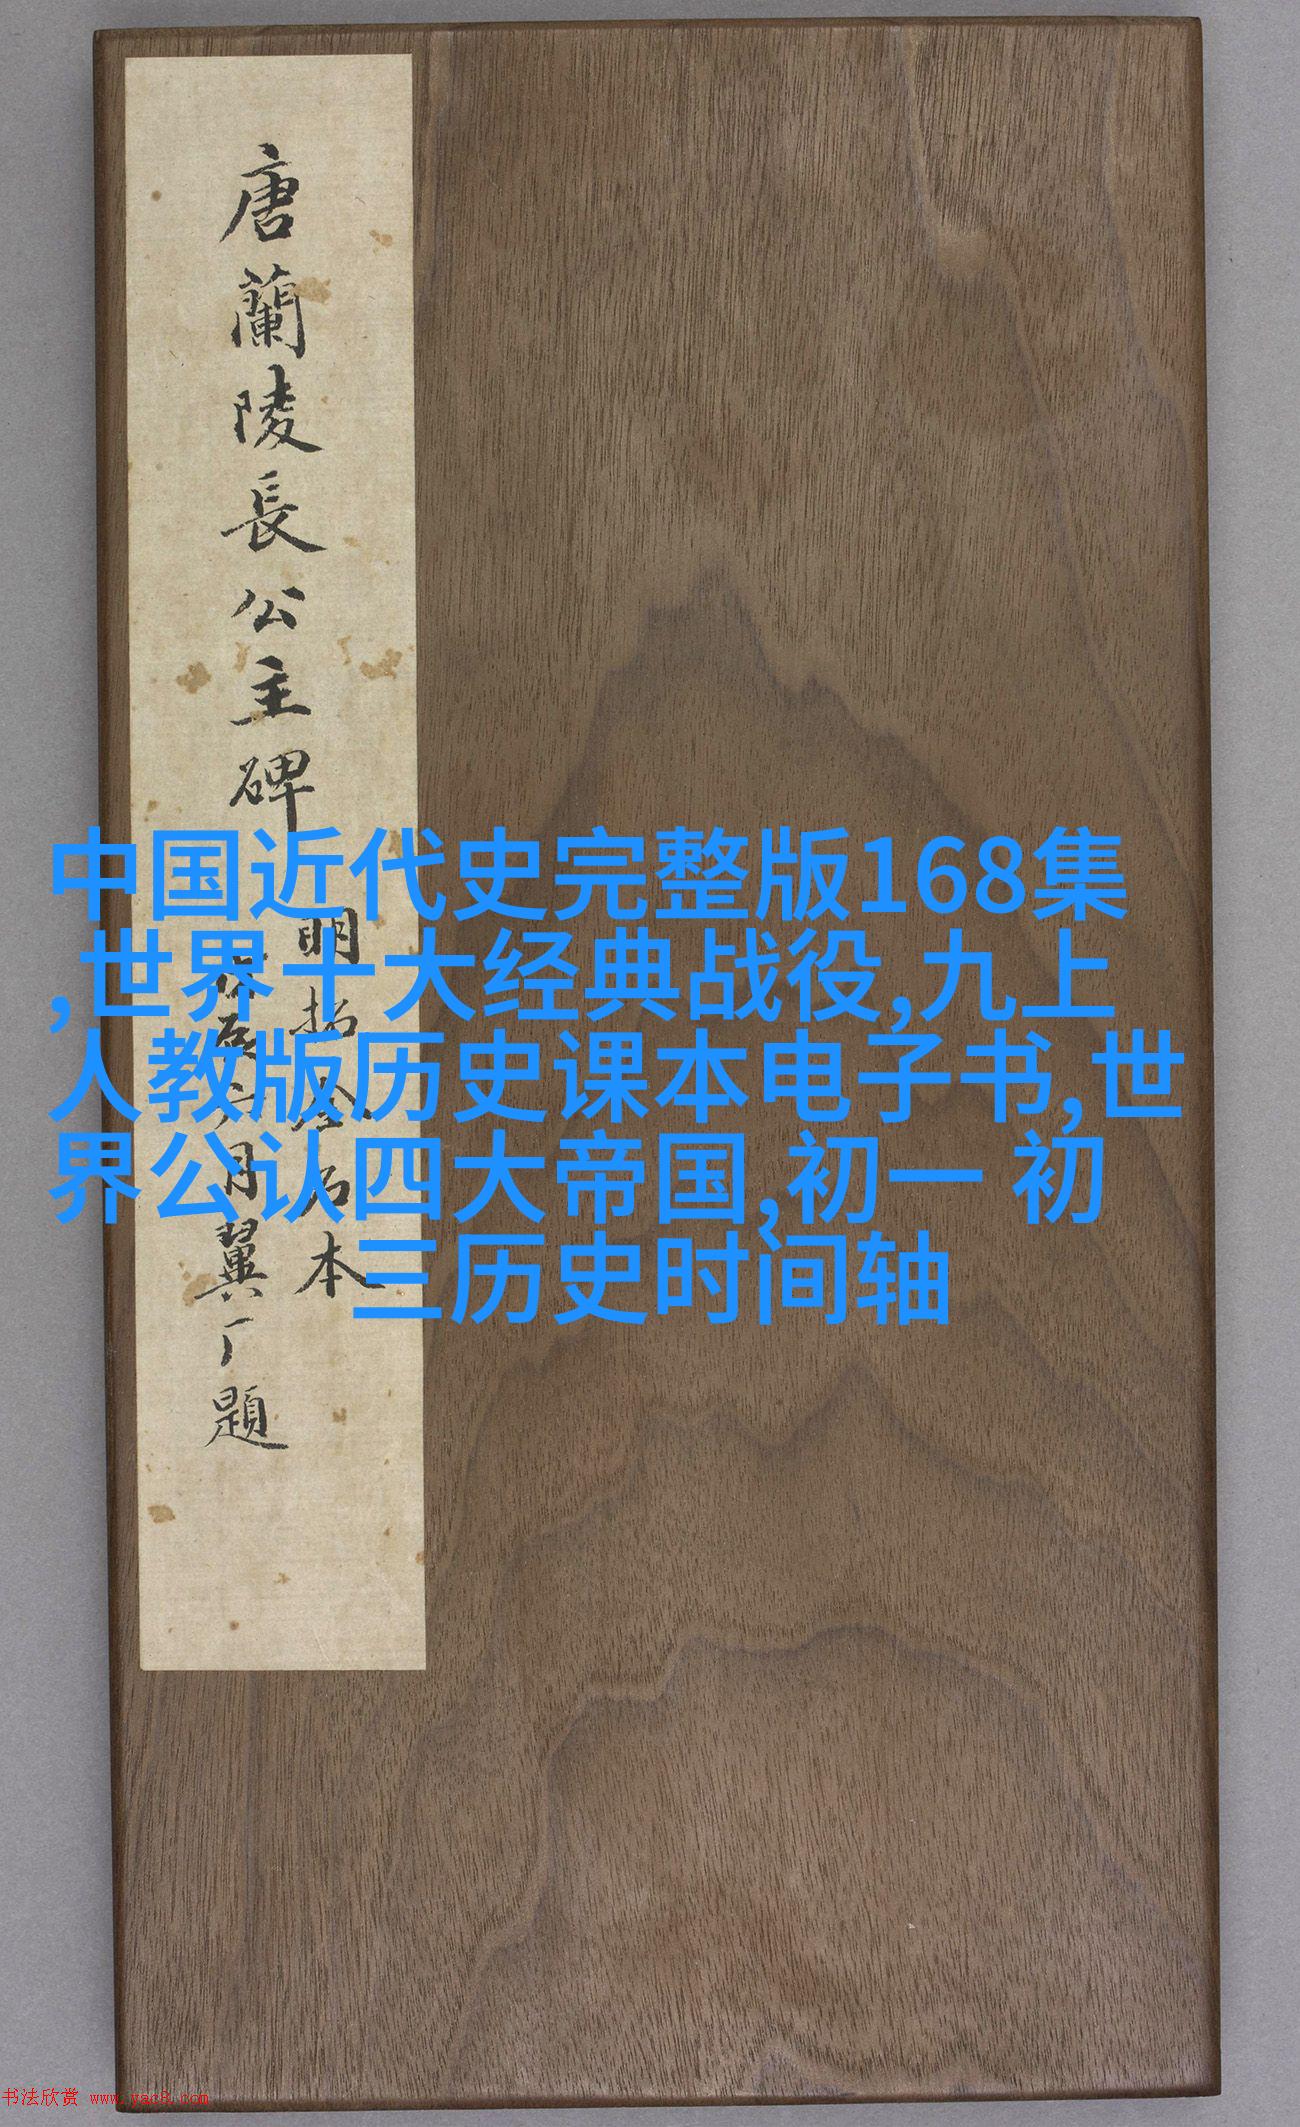 唐蘭陵長公主碑
明拓全石本
辰六月翼厂題
中国近代史完整版168集
,世界十大经典战役,九上
人教版历史课本电子书,世
界公认四大帝国,初一 初
三历史时间轴
书法欣赏 www.yac8.com